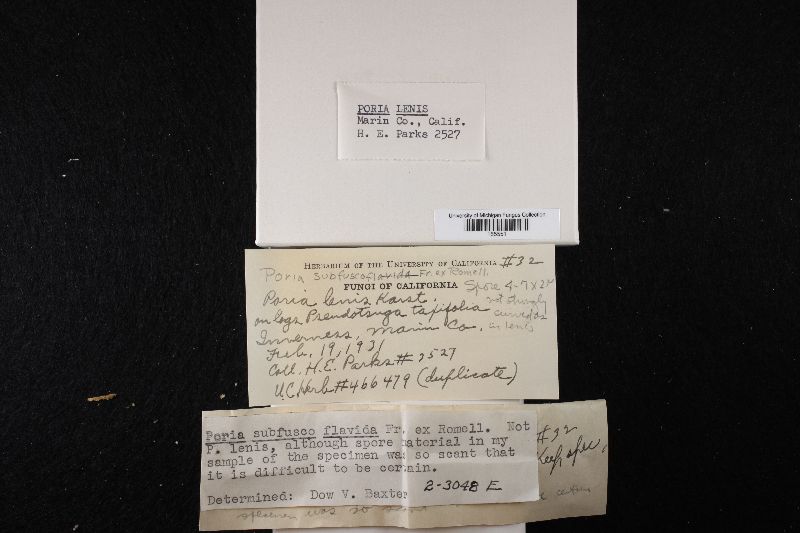 PORIA LENIS
Marin Co., Calif.
H. E. Parks 2527
University of Michigan Fungus Collection
HERBARIUM OF THE UNIVERSITY OF CALIFORNIA #32
Poria subfuscoflavida Fr. ex Romell.
FUNGI OF CALIFORNIA
Spore 4-7 x 2
Poria lenis Karst.
not strongly
on logs Pseudotsuga taxifolia
curved as
Inverness, Marin Co.
in lenis
Feb. 19, 1931
Coll. H.E. Parks # 2527
U.C. Herb #466479 (duplicate)
Poria subfusco flavida Fr. ex Romell. Not
P. lenis, although spore material in my
sample of the specimen was so scant that
it is difficult to be certain.
Determined: Dow V. Baxter
2-3048 E
#32
Keep spec.
specimen was so scant